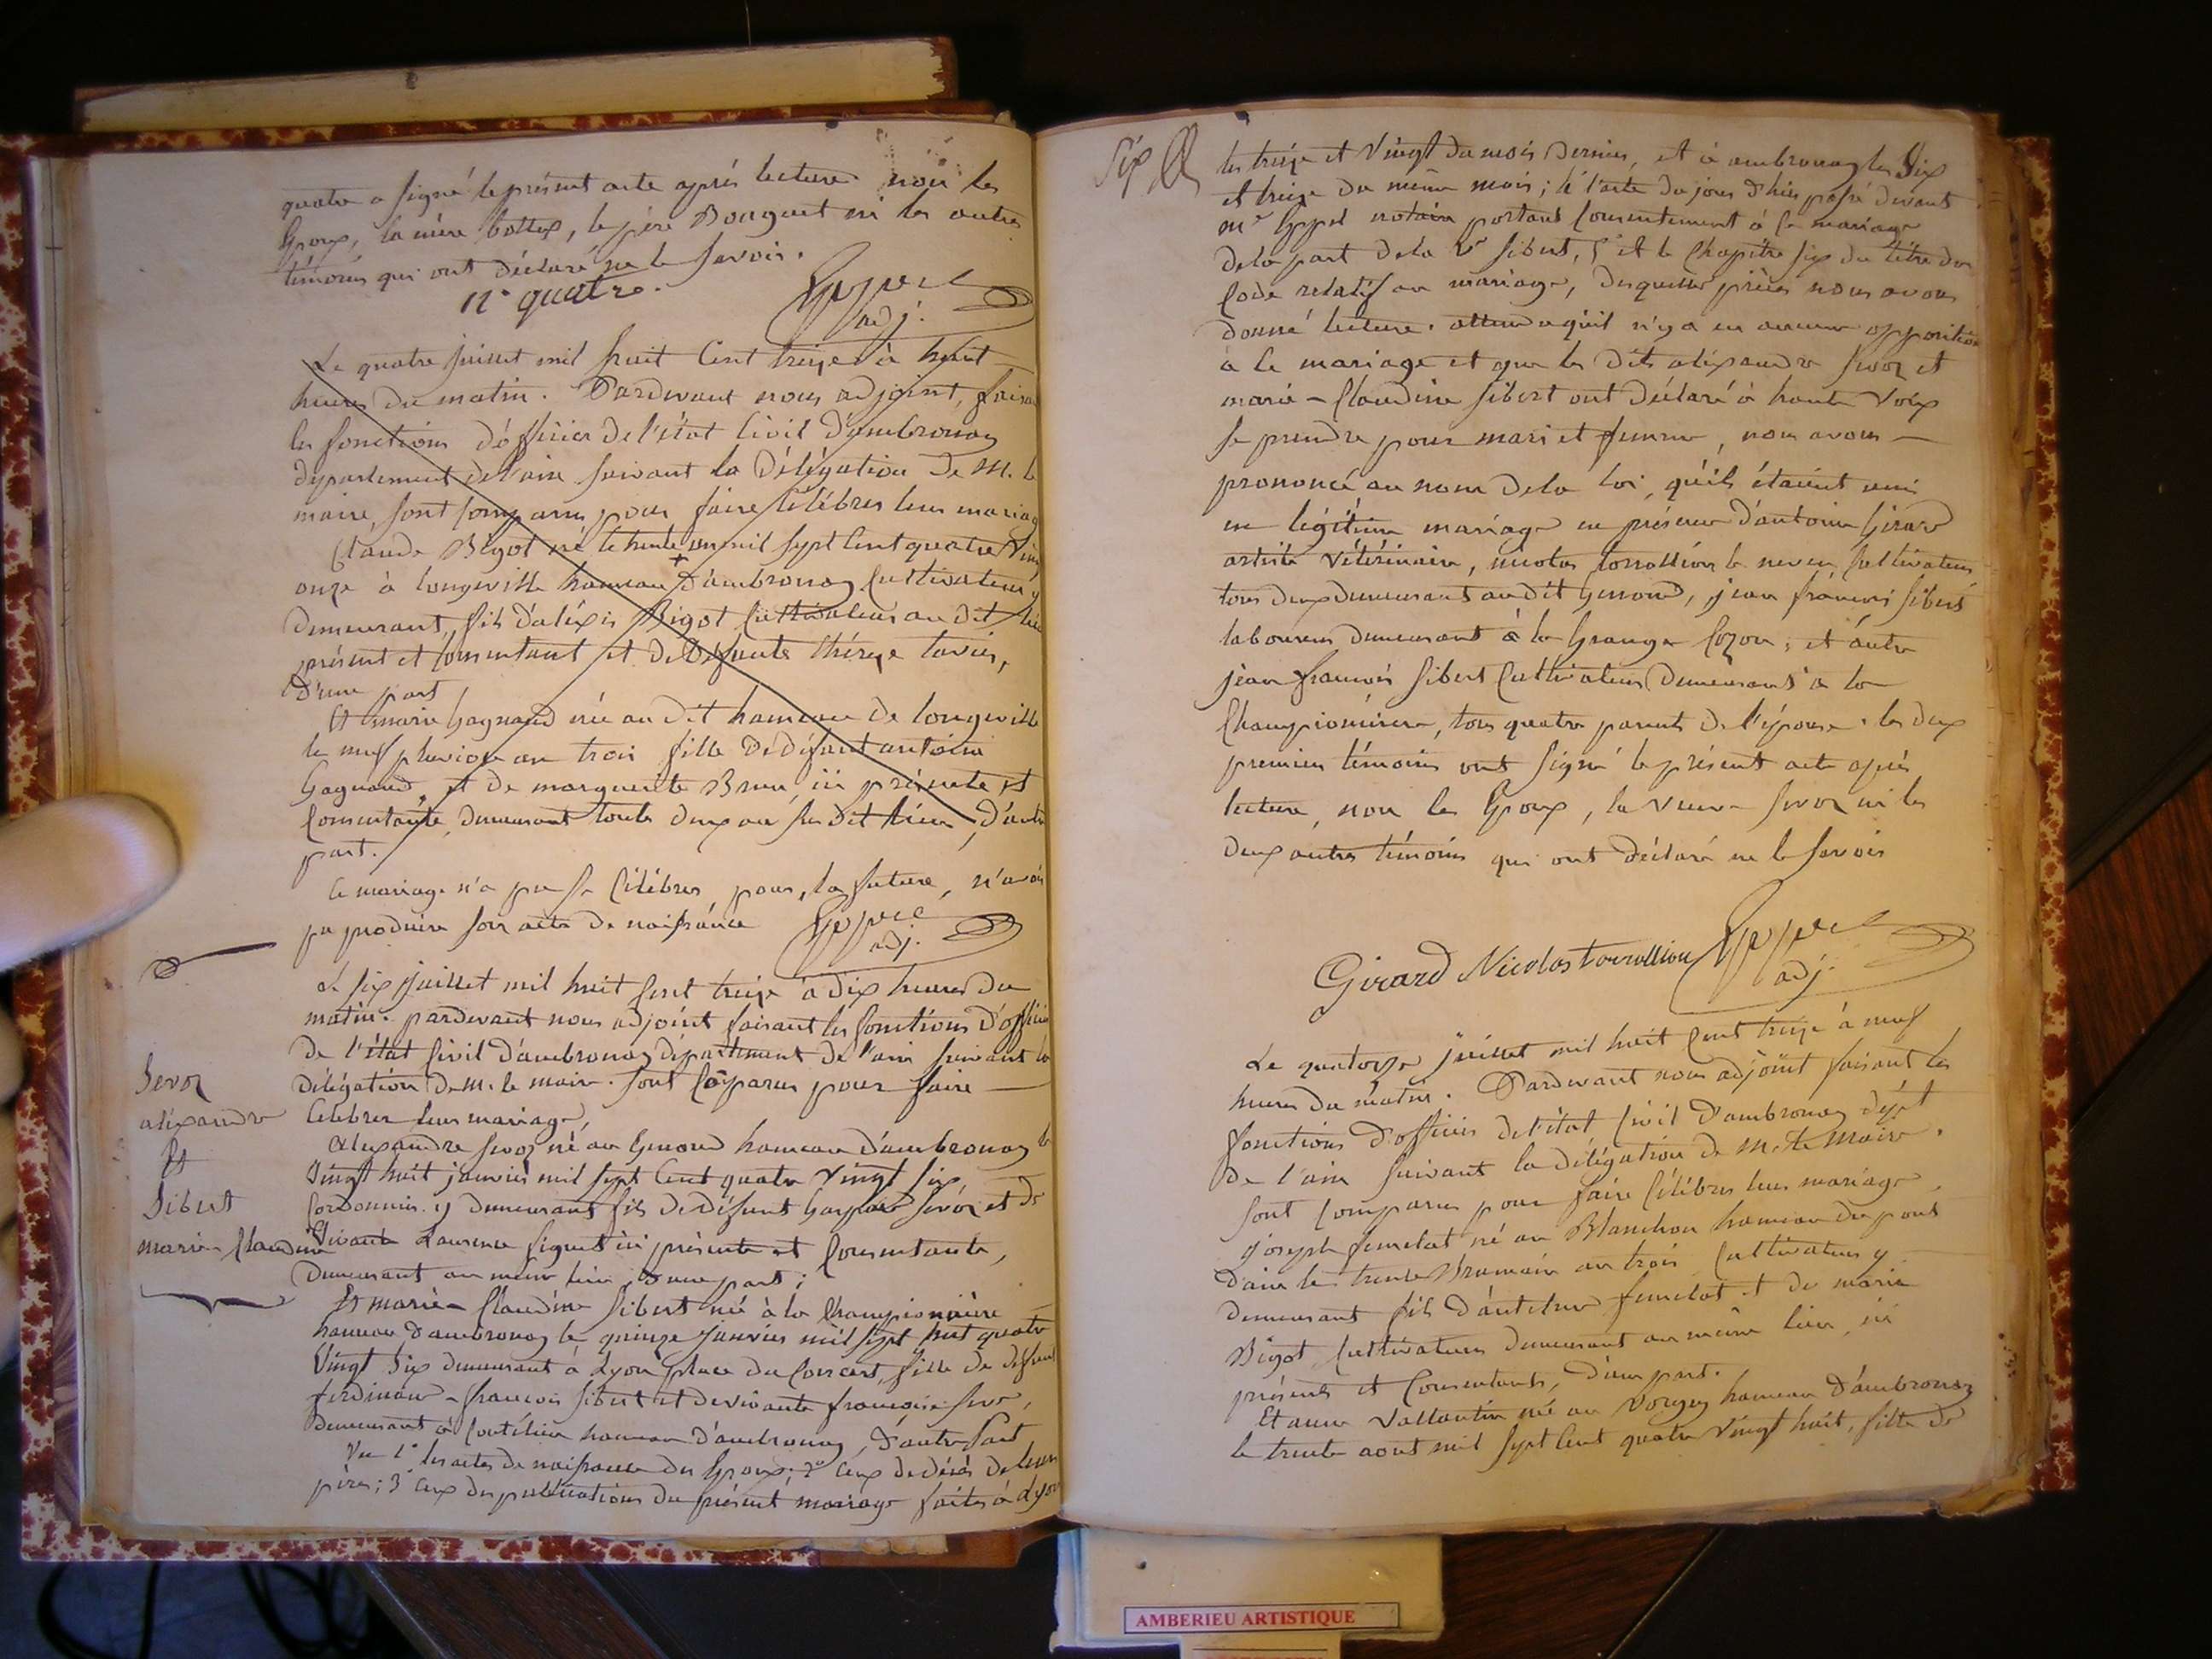 quatre a signé le présent acte après lecture non les
Epoux, la mère bottex, le père Bouquet ni les autres
témoins qui ont déclaré ne le savoir.
n° quatre.
adj.
Le quatre juillet mil huit Cent treize à huit
heures du matin. Pardevant nous adjoint, faisa
les fonctions d'officier de l'état Civil d'ambronay
département de l'ain suivant la délégation de M. le
maire, sont comparus pour faire célébrer leur mariag
Claude Bigot né le trente un mil sept Cent quatre ving
onze à longeville hameau d'ambronay Cultivateur y
demeurant, fils d'aléxis Bigot Cultivateur au dit lieu
présent et consentant et de défunte thérèze
d'une part
Et marie Gagnaud née au dit hameau de longeville
le neuf pluviose an trois fille de défunt antoine
Gagnaud, et de marguerite Brun, ici présente et
Consentante, demeurant toutes deux au susdit lieu, d'autre
part.
Ce mariage n'a pu se célébrer, pour, la future, n'avoir
pu produire son acte de naissance
adj.
Le six juillet mil huit Cent treize à dix heures du
matin. pardevant nous adjoint faisant les fonctions d'officier
de l'état Civil d'ambronay département de l'ain suivant la
délégation de M. le maire. sont Coparus pour faire
Célébrer leur mariage,
Sevoz
aléxandre
Et
Sibert
marie Claudine
Alexandre Sevoz né au Genoud hameau d'ambronay le
Vingt huit janvier mil sept Cent quatre Vingt six,
Cordonnier y demeurant fils de défunt Gaspard Sevoz et de
Vivante Laurence Siguet ici présente et Consentante,
demeurant au même lieu, d'une part;
Et marie-Claudine Sibert née à la Championnière
hameau d'ambronay le quinze janvier mil sept Cent quatre
Vingt six demeurant à Lyon place du Concert, fille de défunt
ferdinand-françois Sibert et de vivante françoise
demeurant à Coutelieu hameau d'ambronay, d'autre part
Vu 1° les actes de naissance des Epoux; 2° ceux de décès de leurs
pères; 3° ceux des publications du présent mariage faites à Lyon
Six
les treize et Vingt du mois dernier, et à ambronay les Six
et treize du même mois; 4° l'acte du jour d'hier passé devant
me Eppel notaire portant Consentement à ce mariage
de la part de la Ve Sibert, 5° et le Chapitre six du titre du
Code relatif au mariage, desquelles pièces nous avons
donné lecture. attendu qu'il n'y a eu aucune opposition
à ce mariage et que les dits aléxandre Sevoz et
marie-Claudine Sibert ont déclaré à haute Voix
se prendre pour mari et femme, nous avons
prononcé au nom de la loi, qu'ils étaient unis
en légitime mariage en présence d'antoine Girard
artiste Vétérinaire, nicolas torrollion le neveu Cultivateur
tous deux demeurant au dit Genoud, jean françois Sibert
laboureur demeurant à la Grange Cozon, et autre
jean françois Sibert Cultivateur demeurant à la
Championnière, tous quatre parents de l'épouse. les deux
premiers témoins ont signé le présent acte après
lecture, non les Epoux, la veuve Sevoz ni les
deux autres témoins qui ont déclaré ne le savoir
Girard Nicolas torrollion
adj.
Le quatorze juillet mil huit Cent treize à neuf
heures du matin. Pardevant nous adjoint faisant les
fonctions d'officier de l'état Civil d'ambronay dépt
de l'ain suivant la délégation de M. le Maire.
sont Comparus pour faire Célébrer leur mariage,
joseph femelat né au Blanchon hameau du pont
d'ain le trente Brumaire an trois Cultivateur y
demeurant fils d'antelme femelat et de marie
Bigot Cultivateurs demeurant au même lieu, ici
présents et Consentants, d'une part.
Et anne Vallantin née au Vorgey hameau d'ambronay
le trente aout mil sept Cent quatre Vingt huit, fille de
AMBERIEU ARTISTIQUE